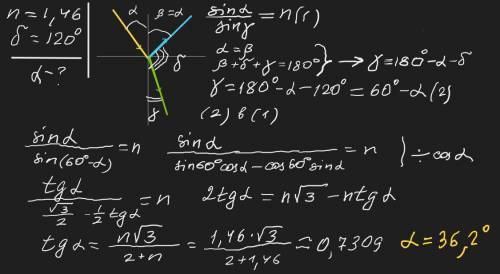 n = 1,46
δ = 120°
α - ?
α β = α
δ
γ
sinα / sinγ = n (1)
α = β
β + δ + γ = 180° } → γ = 180° - α - δ
γ = 180° - α - 120° = 60° - α (2)
(2) в (1)
sinα / sin(60° - α) = n sinα / sin60°cosα - cos60°sinα = n ) ÷ cosα
tgα / √3/2 - 1/2 tgα = n 2tgα = n√3 - ntgα
tgα = n√3 / 2 + n = 1,46·√3 / 2 + 1,46 ≈ 0,7309 α = 36,2°